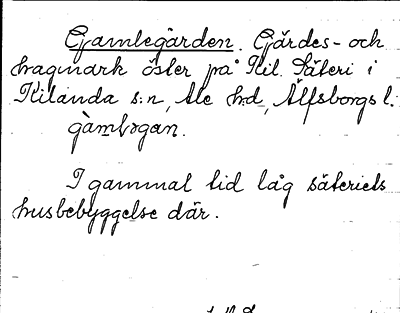 Gamlegården. Gärdes- och
hagmark öster på Kil. Säteri i
Kilanda s:n, Ale h:d, Älfsborgs l.
gàmləgan.
I gammal tid låg säteriets
husbebyggelse där.